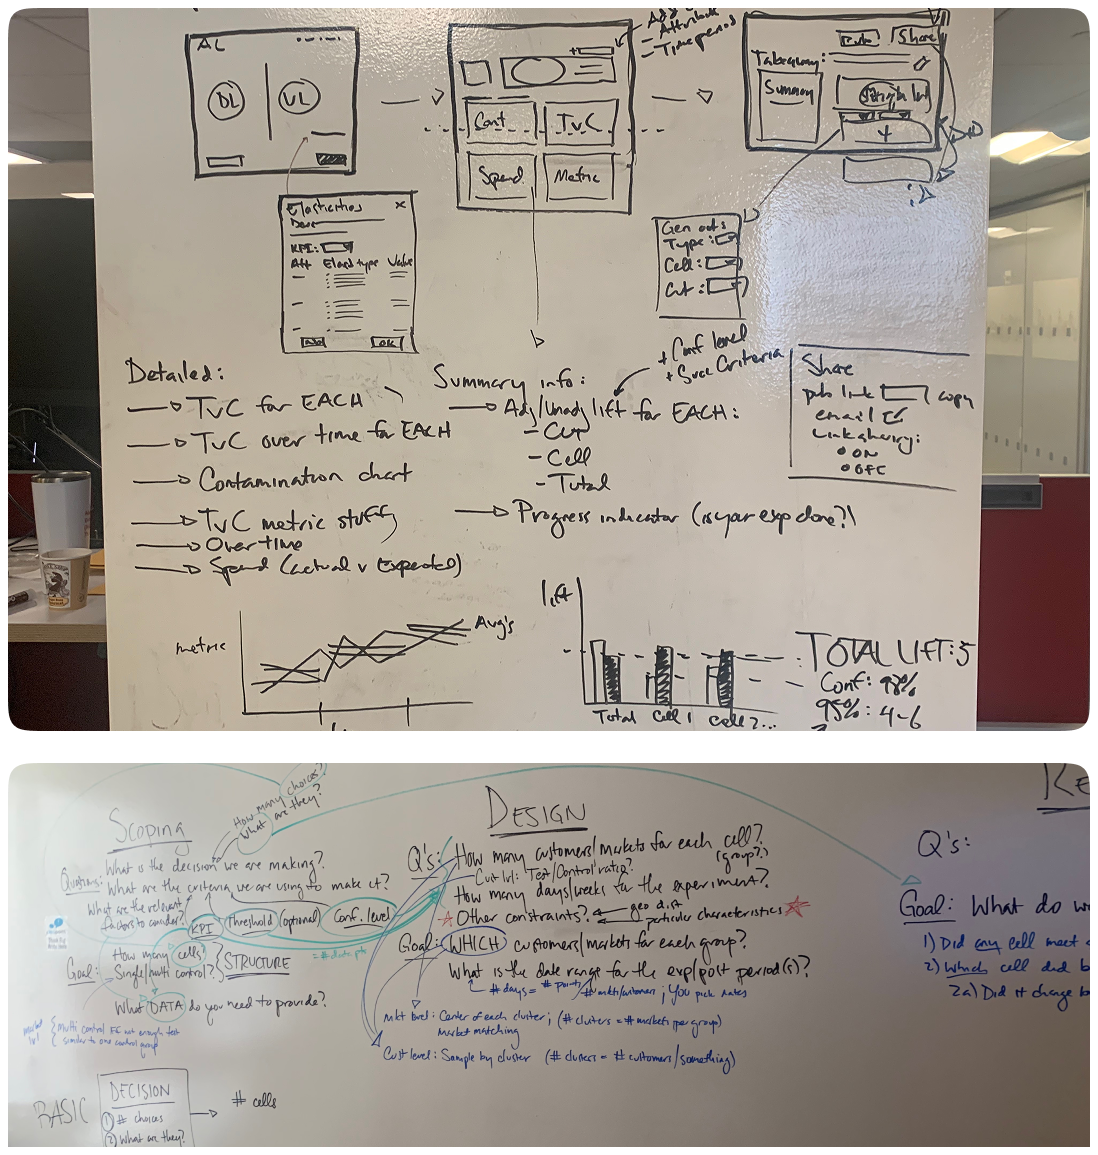 AL
DL
UL
Attribute
Time period
Cont
TvC
Spend
Metric
Share
Takeaway:
Summary
Elasticities
KPI:
Att Elast type Value
OK
Gen outs
Type:
Cell:
Cut:
Detailed:
TvC for EACH
TvC over time for EACH
Contamination chart
TvC metric stuff
Over time
Spend (actual v Expected)
+ Conf level
+ Succ Criteria
Summary info:
Adj/Unadj lift for EACH:
- Cut
- Cell
- Total
Progress indicator (is your exp done?)
Share
pub link copy
email
Link sharing:
ON
OFF
metric
Avg's
lift
Total Cell 1 Cell 2...
TOTAL LIFT: 5
Conf: 98%
95%: 4-6
How many choices?
What are they?
Scoping
Questions: What is the decision we are making?
What are the criteria we are using to make it?
What are the relevant
factors to consider?
KPI Threshold (optional) Conf. level
How many cells?
Goal: Single/multi control?
STRUCTURE
= # date pts
What DATA do you need to provide?
market
lvl
multi control if not enough test
similar to one control group
BASIC
DECISION
1) # choices
2) What are they?
# cells
DESIGN
Q's: How many customers/markets for each cell?
(group?)
Cust lvl: Test/Control ratio?
How many days/weeks for the experiment?
Other constraints? geo dist
particular characteristics
Goal: WHICH customers/markets for each group?
What is the date range for the exp/post period(s)?
# days = # points # mkts/customers; you pick dates
Mkt level: Center of each cluster; (# clusters = # markets per group)
Market matching
Cust level: Sample by cluster (# clusters = # customers/something)
Q's:
Goal: What do
1) Did any cell meet
2) Which cell did
2a) Did it change